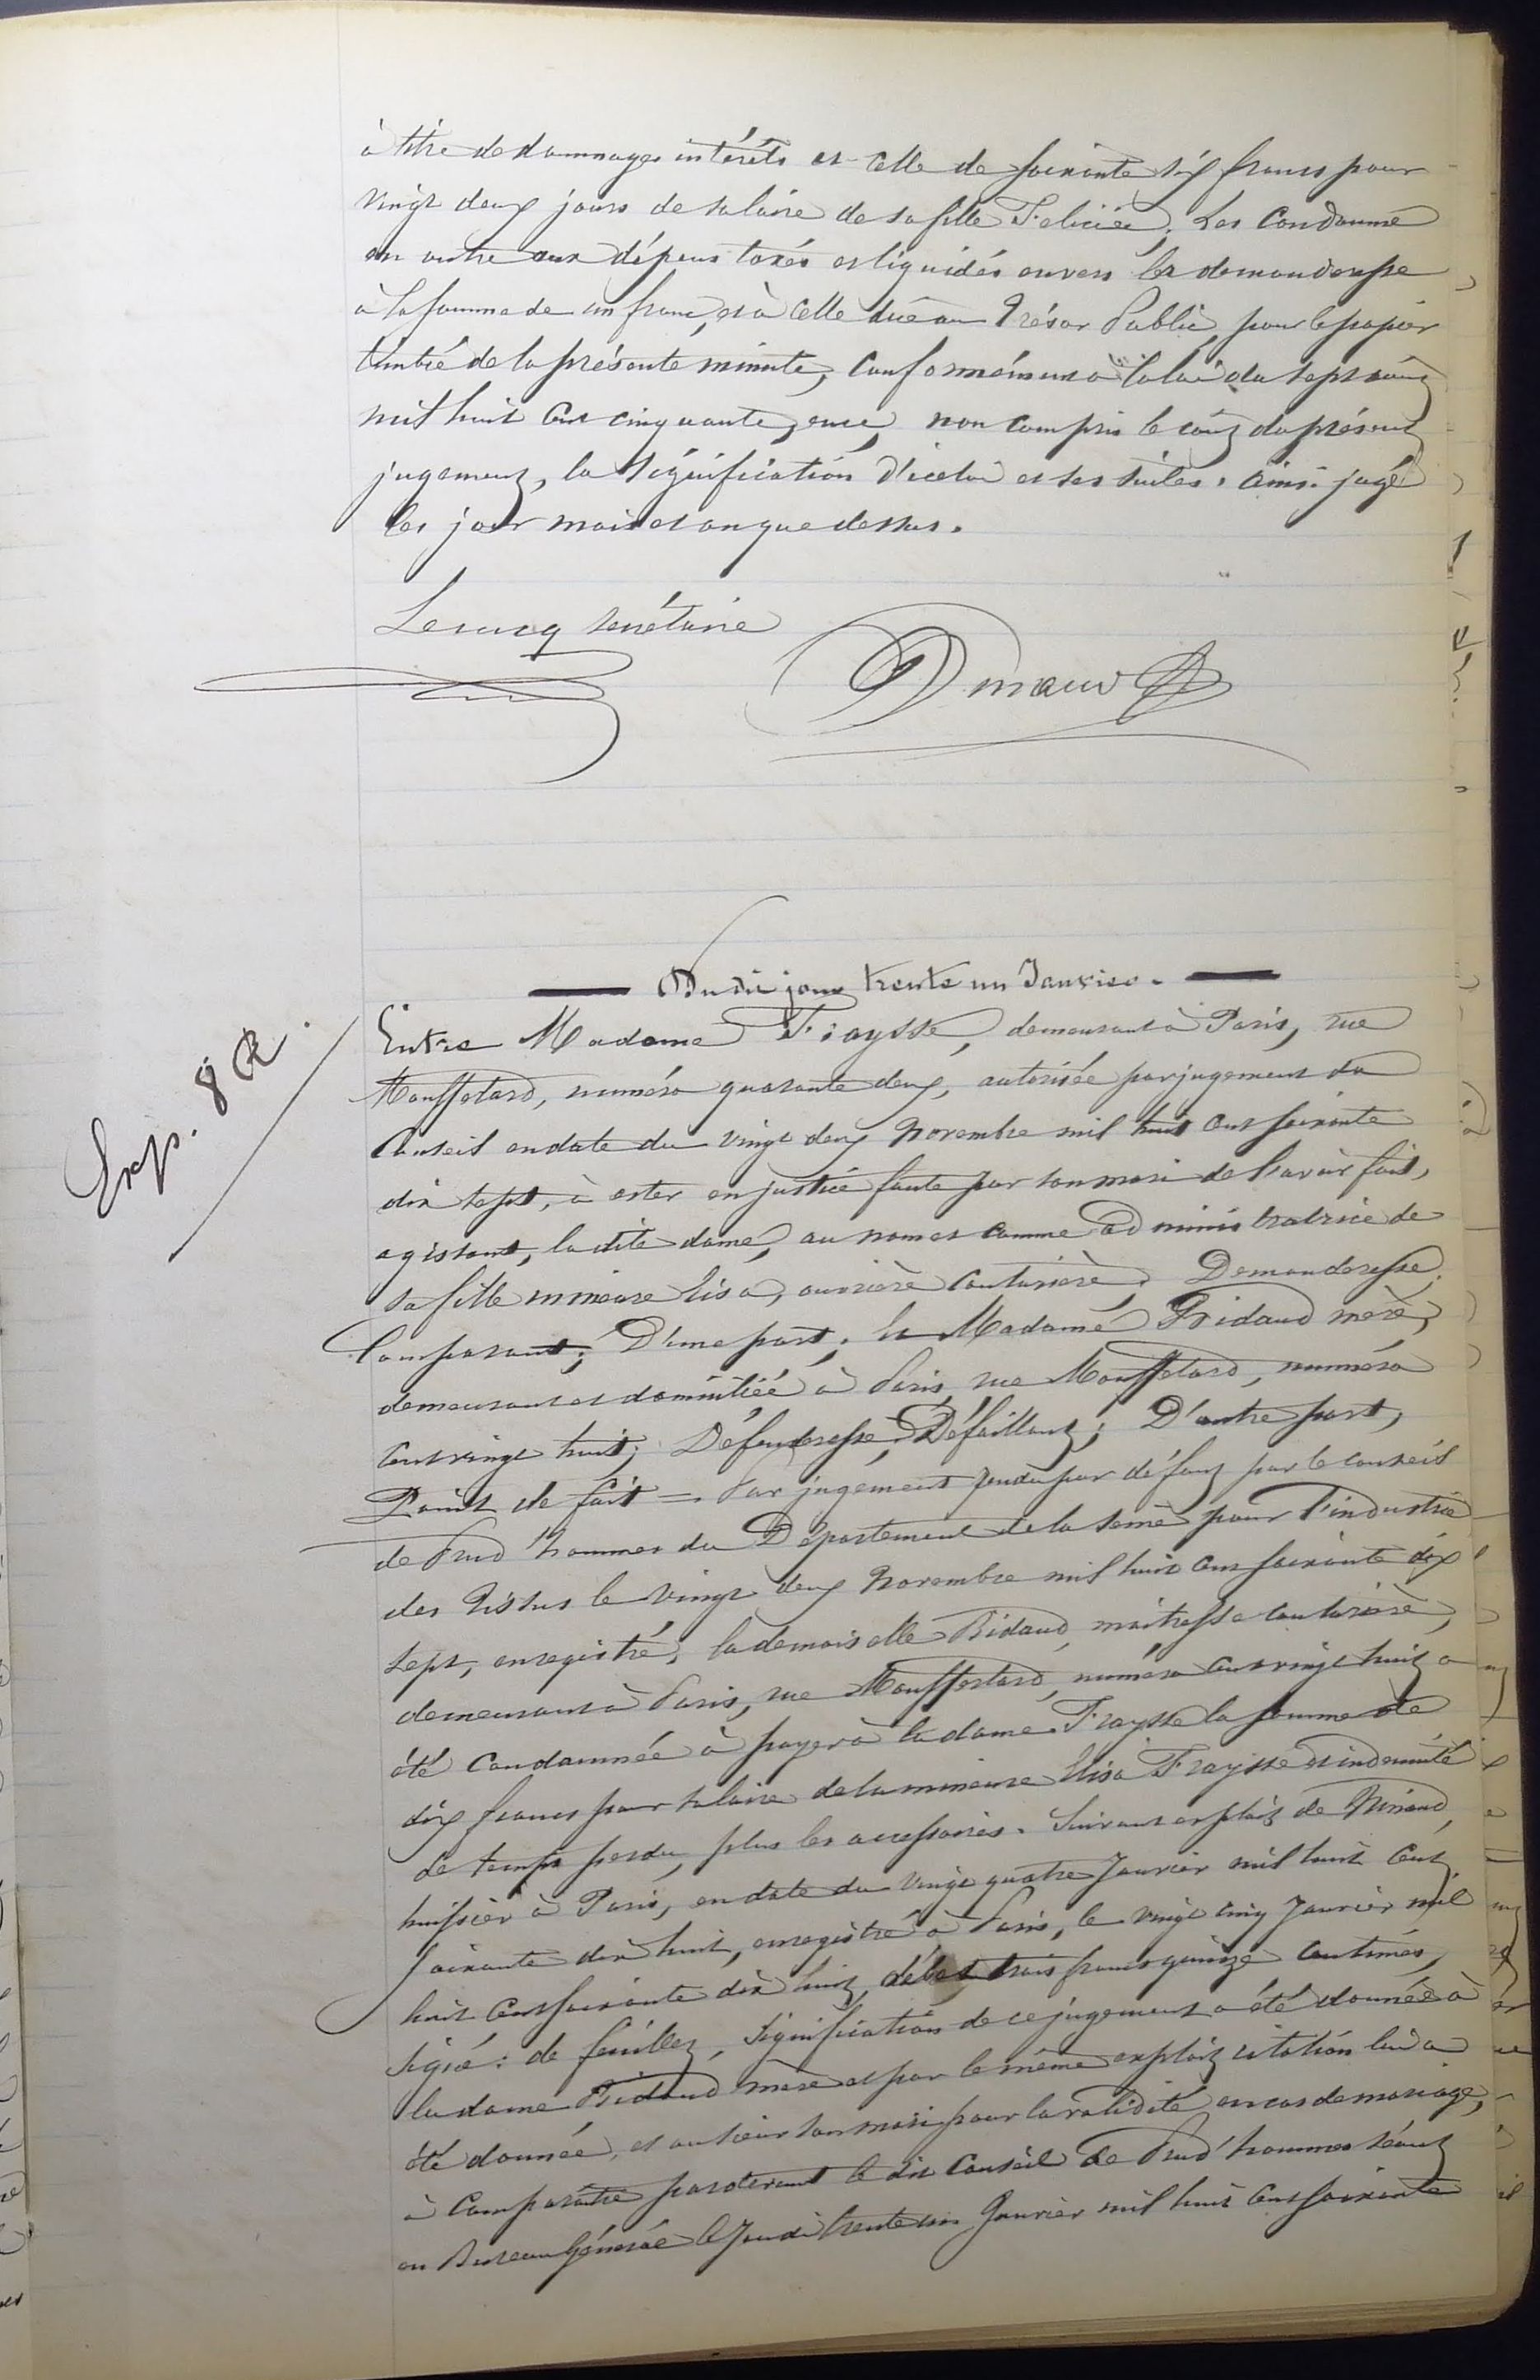 à titre de dommages intérêts et celle de soixante six francs pour
vingt deux jours de salaire de sa fille Féliciée; Les Condamne
en outre aux dépens taxés et liquidés envers la demanderesse
à la somme de un franc, et à celle due au Trésor Public, pour le papier
timbré de la présente minute, conformément à la loi du sept août
mil huit cent cinquante, ence, non compris le coût du présent
jugement, la signification d'icelui et ses suites. Ainsi jugé
les jour mois et an que dessus.
Lecucq secrétaire
Exp. 8 R.
Du dit jour trente un Janvier.
Entre Madame Fraysse, demeurant à Paris, rue
Mouffetard, numéro quarante deux, autorisée par jugement du
Conseil en date du vingt deux Novembre mil huit cent soixante
dix sept, à ester en justice faute par son mari de l'avoir fait,
agissant, la dite dame, au nom et comme administratrice de
sa fille mineure Elisa, ouvrière couturière; Demanderesse;
Comparant; D'une part; Et Madame Bidaud mère,
demeurant et domiciliée à Paris, rue Mouffetard, numéro
cent vingt huit; Défenderesse; Défaillant; D'autre part;
Point de fait = Par jugement rendu par défaut par le conseil
de Prud'hommes du Département de la Seine pour l'industrie
des Tissus le vingt deux Novembre mil huit cent soixante dix
sept, enregistré, la demoiselle Bidaud, maîtresse couturière,
demeurant à Paris, rue Mouffetard, numéro cent vingt huit a
été condamnée à payer à la dame Fraysse la somme de
dix francs pour salaire de la mineure Elisa Fraysse et indemnité
de temps perdu, plus les accessoires. Suivant exploit de
huissier à Paris, en date du vingt quatre Janvier mil huit cent
soixante dix huit, enregistré à Paris, le vingt cinq Janvier mil
huit cent soixante dix huit, débet trois francs quinze centimes,
signé: de feuillez, signification de ce jugement a été donnée à
la dame Bidaud mère et par le même exploit citation lui a
été donnée, et au sieur son mari pour la validité en cas de mariage,
à comparaître pardevant le dit Conseil de Prud'hommes séant
en Bureau Général le Jeudi trente un Janvier mil huit cent soixante